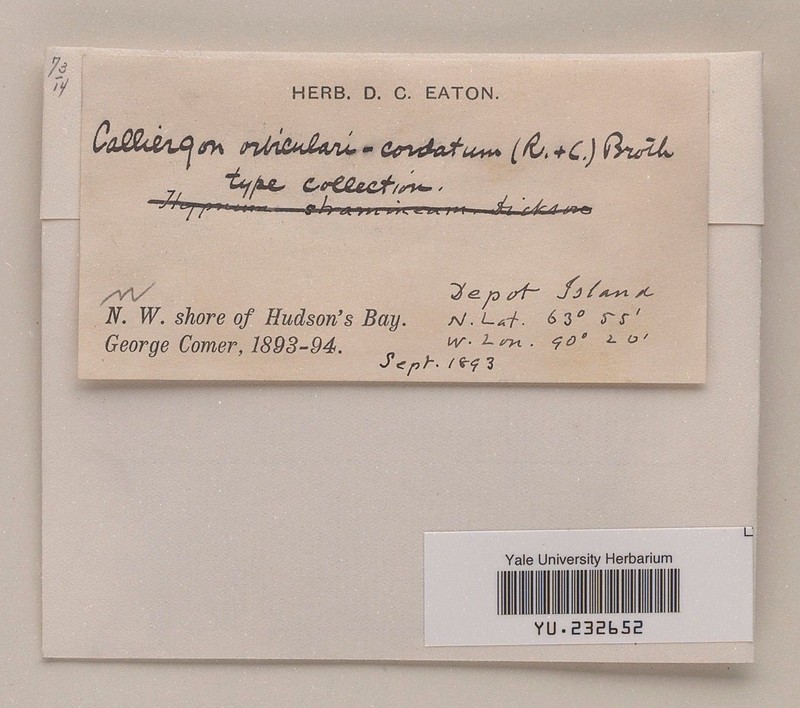 73
14
HERB. D. C. EATON.
Calliergon orbiculari-cordatum (R.+C.) Broth
type collection.
Hypnum stramineum Dickson
N. W. shore of Hudson's Bay.
George Comer, 1893-94.
Depot Island
N. Lat. 63° 55'
W. Lon. 90° 20'
Sept. 1893
Yale University Herbarium
YU.232652